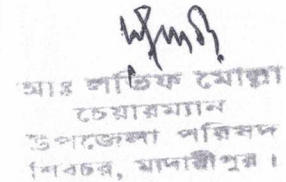 মোঃ লতিফ মোল্লা
চেয়ারম্যান
উপজেলা পরিষদ
শিবচর, মাদারীপুর।